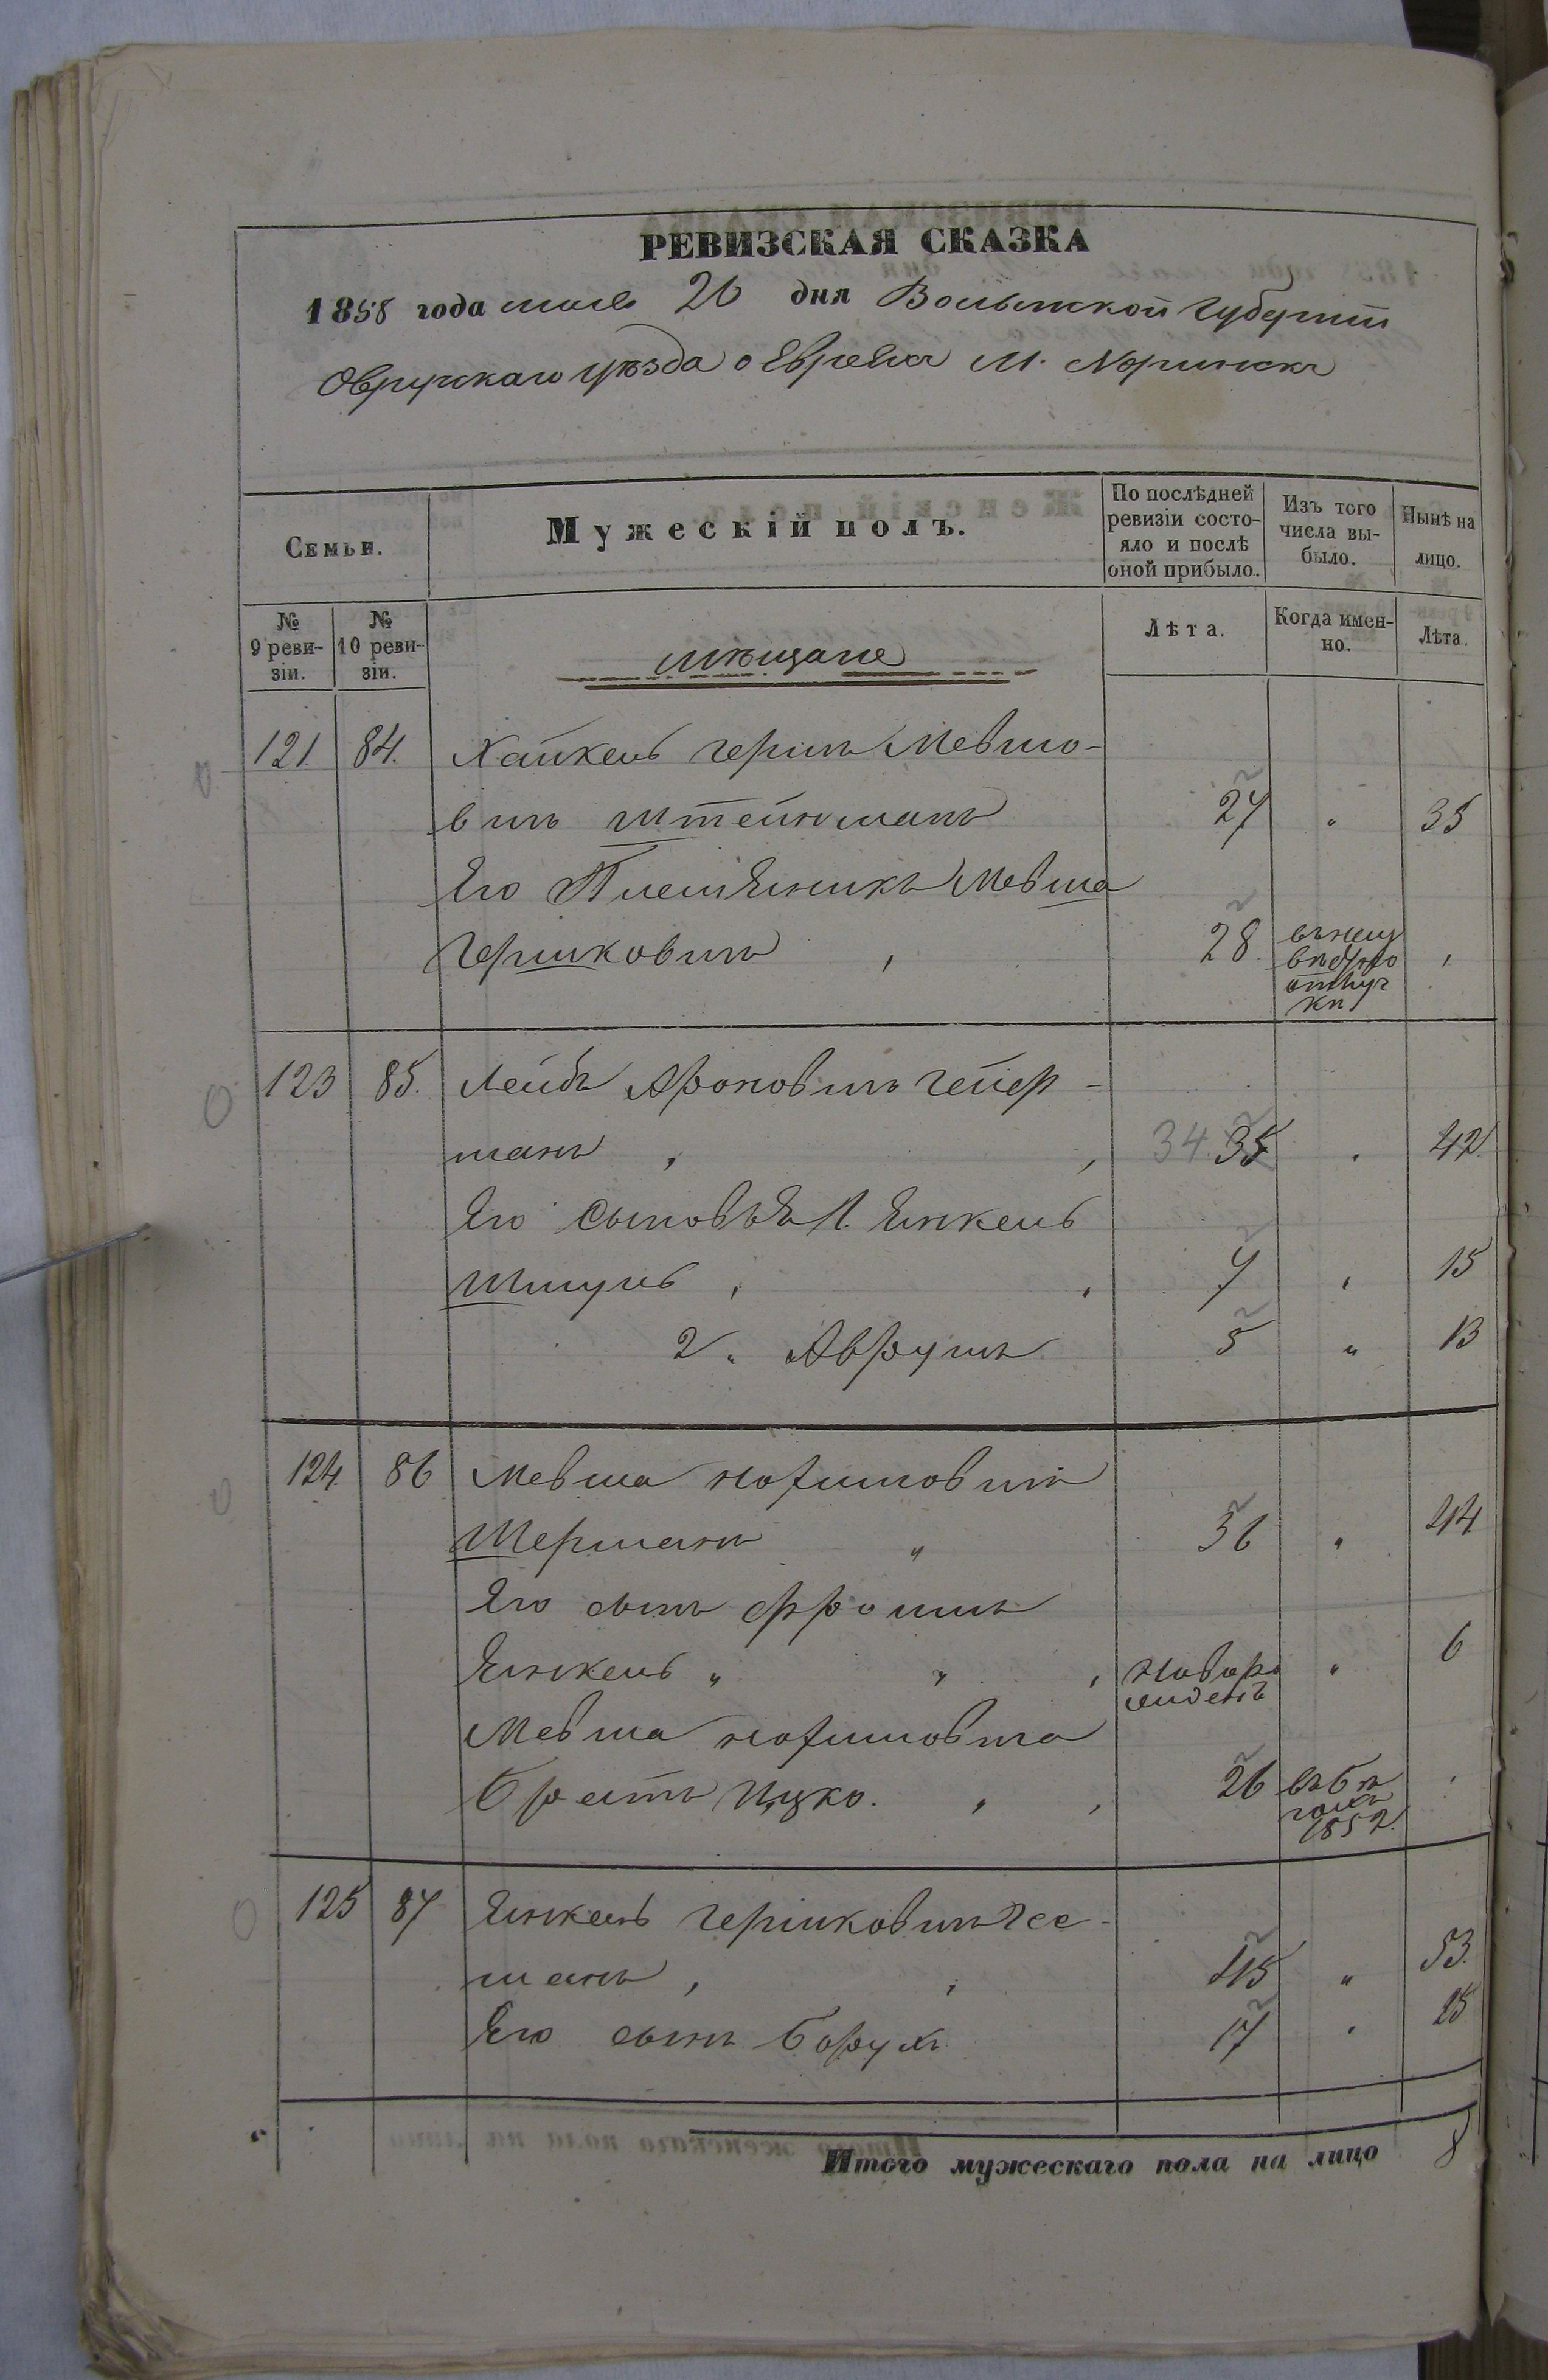 РЕВИЗСКАЯ СКАЗКА
1858 года мая 20 дня Волынской губерніи
Овручскаго уѣзда о Евреяхъ М. Норинска
Семьи.
Мужескій полъ.
По послѣдней ревизіи состояло и послѣ оной прибыло.
Изъ того числа выбыло.
Нынѣ на лицо.
№ 9 ревизіи.
№ 10 ревизіи.
мѣщане
Лѣта.
Когда именно.
Лѣта.
121. 84. Хайкель Гершъ Мевшо-
вичъ Штейнманъ 27 " 35
Его Племянникъ Мевша
Гершковичъ 28. въ неиз
вѣстно
отлуч
кѣ
123 85. Лейба Ароновичъ Гейер-
манъ 34. 35 " 42
Его сыновья 1. Янкель
Шмуль 7 " 15
2. Аврумъ 5 " 13
124. 86 Мевша Нохимовичъ
Шерманъ " 36 " 44
Его сынъ Фроимъ
Янкель " " новоро " 6
жденъ
Мевша Нохимовича
братъ Ицко. 26 въ бѣ
гахъ
1852.
125 87 Янкель Гершковичъ Гее-
манъ 45 " 53.
Его сынъ Борухъ 17 " 25
Итого мужескаго пола на лицо 8